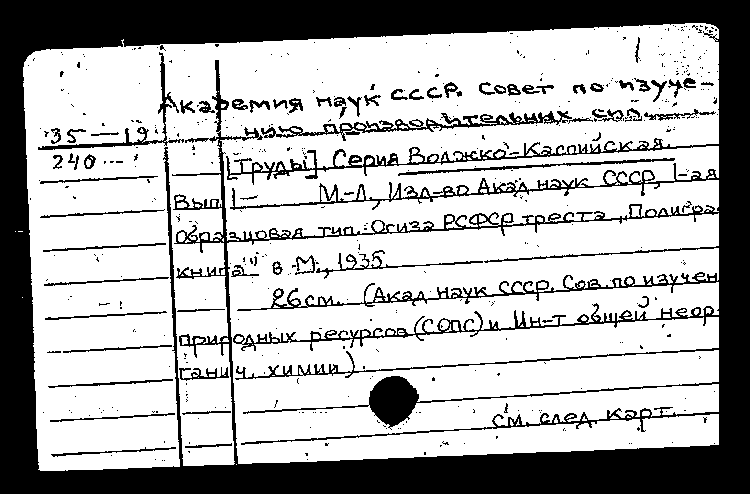 Академия наук СССР. Совет по изуче-
35—19 нию производительных сил.
240 [Труды]. Серия Волжко-Каспийская.
Вып. 1— М.-Л., Изд-во Акад. наук СССР, 1-ая
образцовая тип. Огиза РСФСР треста „Полигра
книга" в М., 1935.
26 см. (Акад. наук СССР. Сов. по изучен
природных ресурсов (СОПС) и Ин-т общей неор-
ганич. химии).
см. след. карт.